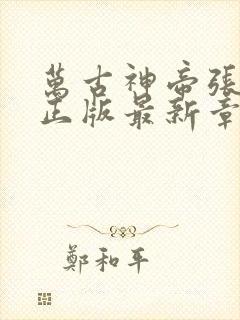 萬古神帝張
正版最新章
鄭和平